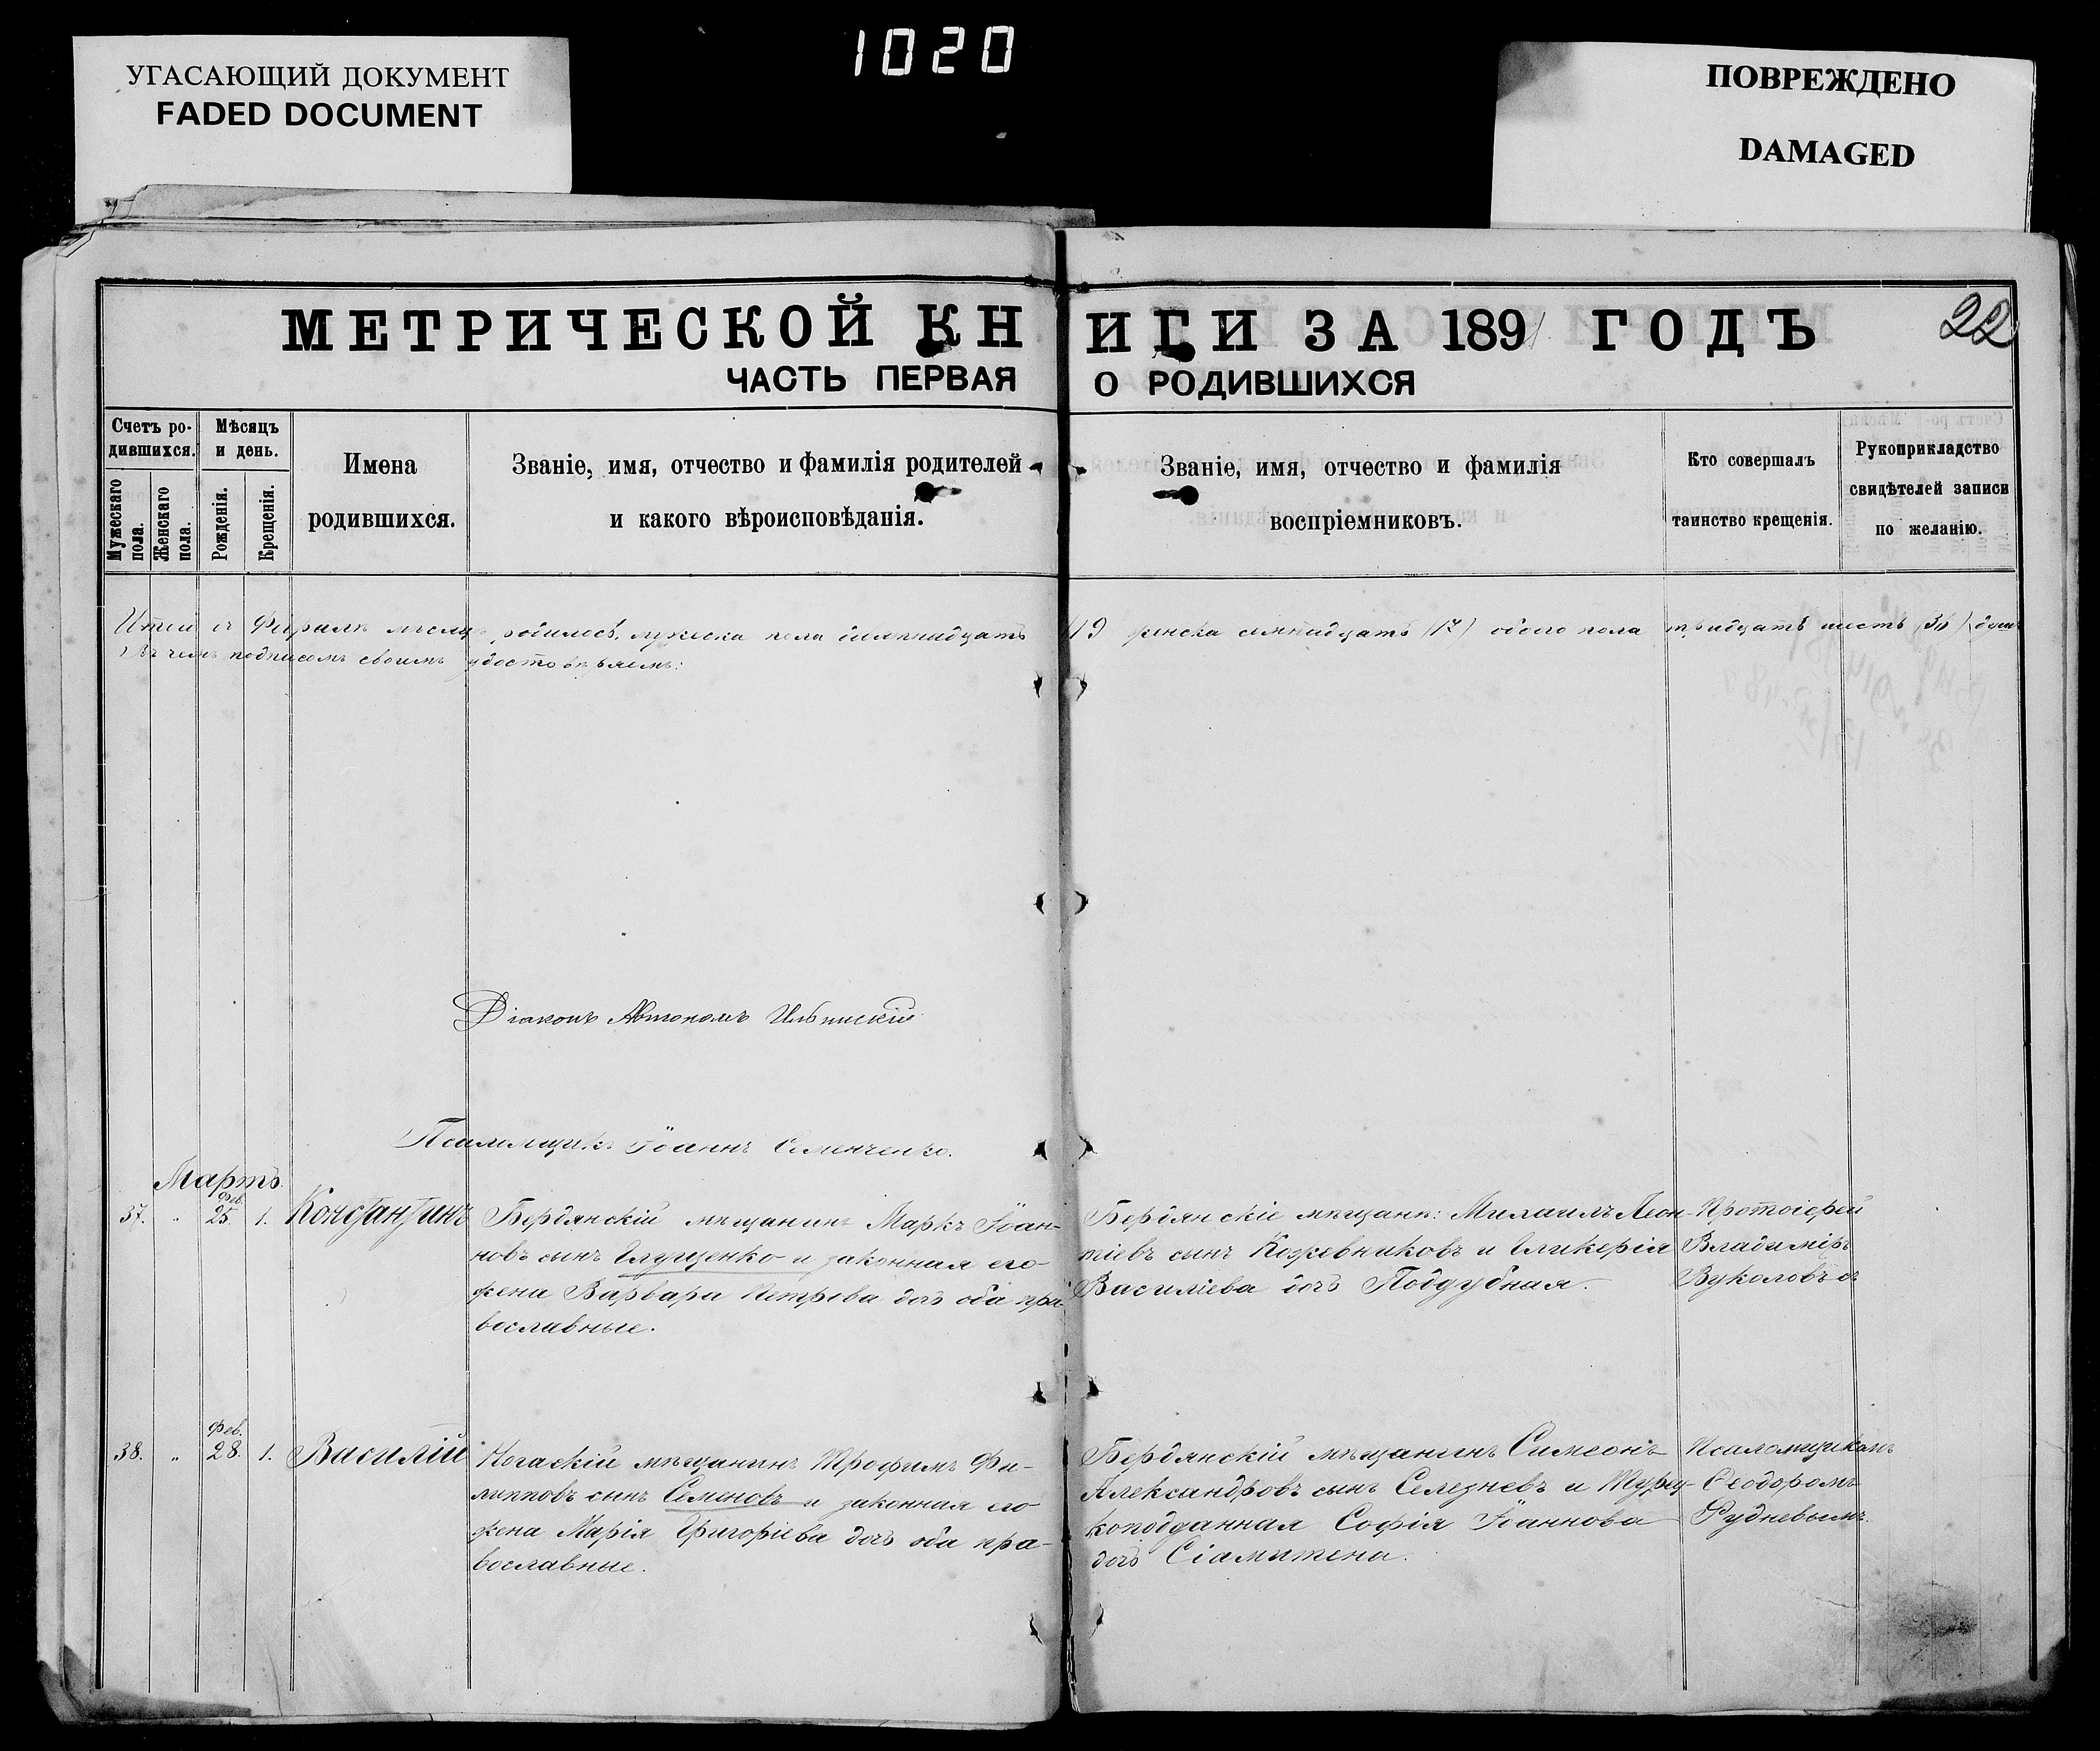 УГАСАЮЩИЙ ДОКУМЕНТ
FADED DOCUMENT
1020
ПОВРЕЖДЕНО
DAMAGED
МЕТРИЧЕСКОЙ КНИГИ ЗА 1891 ГОДЪ
22
ЧАСТЬ ПЕРВАЯ О РОДИВШИХСЯ
Счетъ родившихся.
Мужескаго пола.
Женскаго пола.
Мѣсяцъ и день.
Рожденія.
Крещенія.
Имена
родившихся.
Званіе, имя, отчество и фамилія родителей
и какого вѣроисповѣданія.
Званіе, имя, отчество и фамилія
воспріемниковъ.
Кто совершалъ
таинство крещенія.
Рукоприкладство
свидѣтелей записи
по желанію.
родилось, мужеска пола девятнадцать 19 женска семнадцать (17) обоего пола тридцать шесть (36) душъ
въ чемъ подписомъ своимъ удостовѣряемъ:
Діаконъ Автономъ Ильинскій
Псаломщикъ Іоаннъ Семенченко.
Мартъ.
37. " Фев. 25. 1. Константинъ
Бердянскій мѣщанинъ Маркъ Іоан-
новъ сынъ Глущенко и законная его
жена Варвара Петрова дочь оба пра-
вославные.
Бердянскіе мѣщане: Михаилъ Леон-
тіевъ сынъ Кожевниковъ и Гликерія
Василіева дочь Поддубная.
Протоіерей
Владиміръ
Вуколовъ съ
38. " Фев. 28. 1. Василій
Ногаскій мѣщанинъ Трофимъ Фи-
липповъ сынъ Семеновъ и законная его
жена Марія Григоріева дочь оба пра-
вославные.
Бердянскій мѣщанинъ Симеонъ
Александровъ сынъ Селезневъ и Турец-
коподданная Софія Іоаннова
дочь
Псаломщикомъ
Ѳеодоромъ
Рудневымъ.